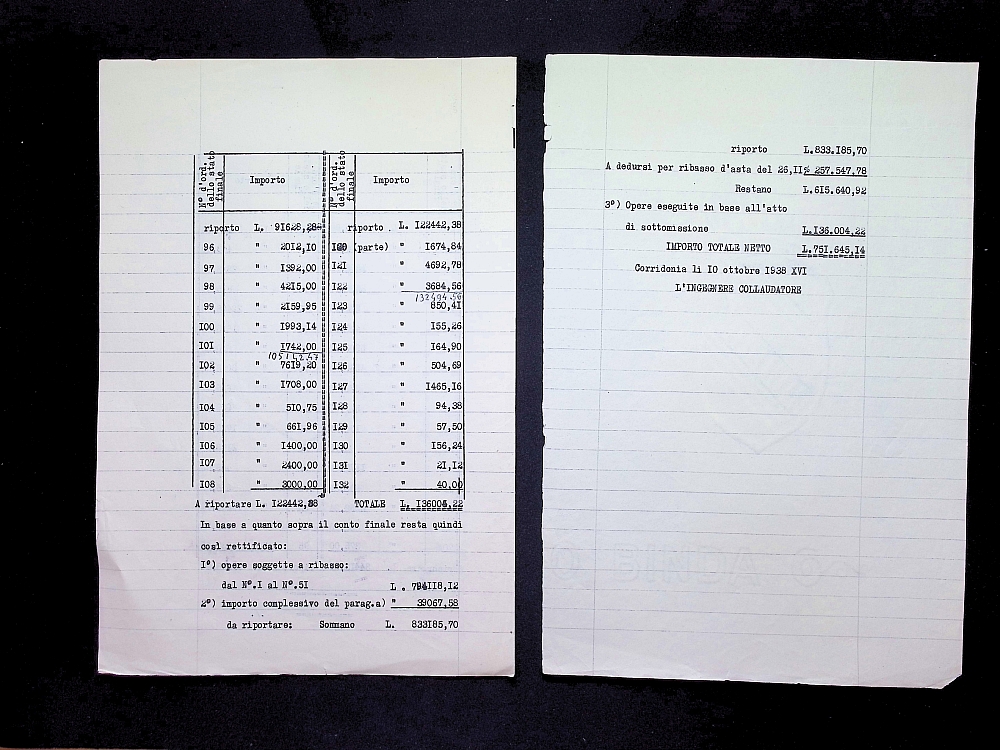 N° d'ord. dello stato finale Importo N° d'ord. dello stato finale Importo
riporto L. 91628,28 riporto . L. 122442,38
96 " 2012,10 (parte) " 1674,84
97 " 1392,00 121 " 4692,78
98 " 4215,00 122 " 3684,56
132494.56
99 " 2159,95 123 " 850,41
100 " 1993,14 124 " 155,26
101 " 1742,00 125 " 164,90
102 " 7619,20 126 " 504,69
103 " 1708,00 127 " 1465,16
104 " 510,75 128 " 94,38
105 " 661,96 129 " 57,50
106 " 1400,00 130 " 156,24
107 " 2400,00 131 " 21,12
108 " 3000,00 132 " 40,00
A riportare L. 122442,38 TOTALE L. 136004,22
In base a quanto sopra il conto finale resta quindi
così rettificato:
1°) opere soggette a ribasso:
dal N°.I al N°.51 L. 794118,12
2°) importo complessivo del parag.a) " 39067,58
da riportare: Sommano L. 833185,70
riporto L.833.185,70
A dedursi per ribasso d'asta del 26,11% 257.547.78
Restano L.615.640,92
3°) Opere eseguite in base all'atto
di sottomissione L.136.004,22
IMPORTO TOTALE NETTO L.751.645,14
Corridonia lì 10 ottobre 1938 XVI
L'INGEGNERE COLLAUDATORE